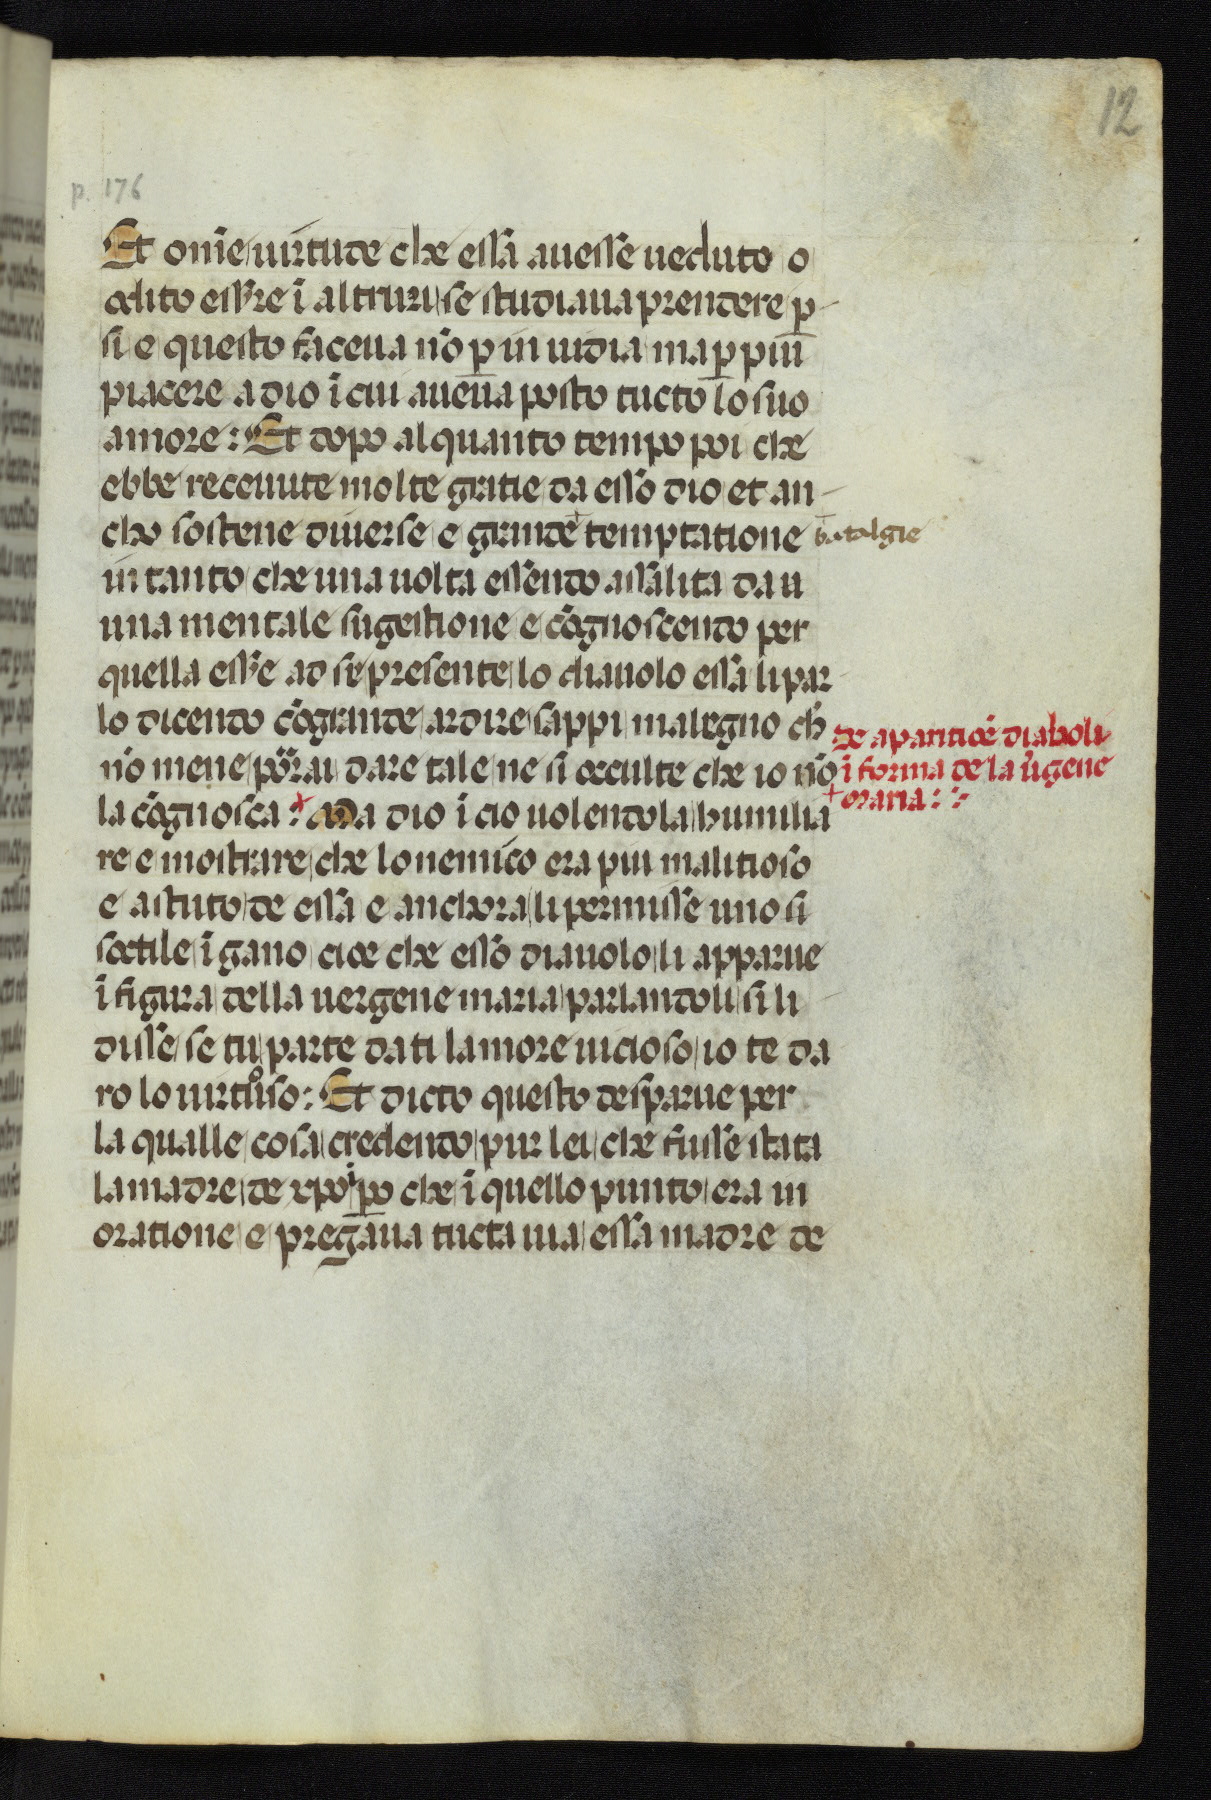 12
p. 176
Et on̄ie uirtude che essa auesse ueduto o
odito ess̉re ī altrui se studiaua prendere p̱
si e questo faceua nō p̱ inuidia ma p̱ piu
piacere a dio ī cui aueua posto tucto lo suo
amore: Et dopo alquanto tempo poi che
ebbe receuute molte gratie da esso dio et an-
cho sostene diuerse e grande + temptatione
+ batalgie
in tanto che una uolta essendo assalita da u
una mentale sugestione e cōgnoscendo per
quella ess̉e ad se presente lo diauolo essa li par-
lo dicendo cō grande ardire sappi malegno ch̄
nō mene porrai dare tale ne si occulte che io nō
la cōgnosca: + Ma dio ī cio uolendola humilia
+ de aparitiōe diaboli
ī forma de la ūgene
maria:
re e mostrare che lo nemico era piu malitioso
e astuto de essa e anchora li permisse uno si
soctile īgano cioe che esso diauolo li apparue
ī figura della uergene maria parlandoli si li
disse se tu parte da ti lamore uicioso io te da
ro lo uirtuoso: Et dicto questo desparue per
la qualle cosa credendo pur lei che fusse stata
la madre de xpo īp̱o che ī quello punto era in
oratione e pregaua tucta uia essa madre de